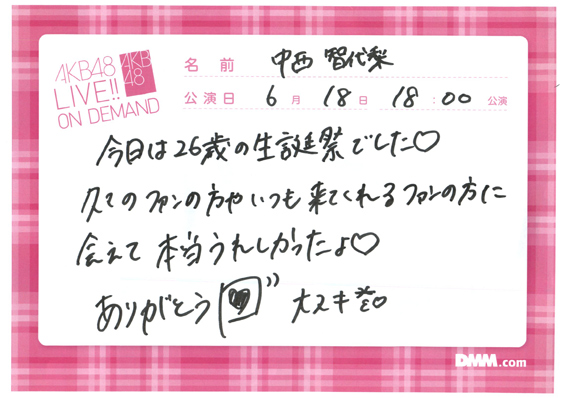 AKB48
LIVE!!
ON DEMAND
AKB
48
名前 中西 智代梨
公演日 6月 18日 18:00 公演
今日は26歳の生誕祭でした♡
久々のファンの方やいつも来てくれるファンの方に
会えて本当うれしかったよ♡
ありがとう
大スキ
DMM.com